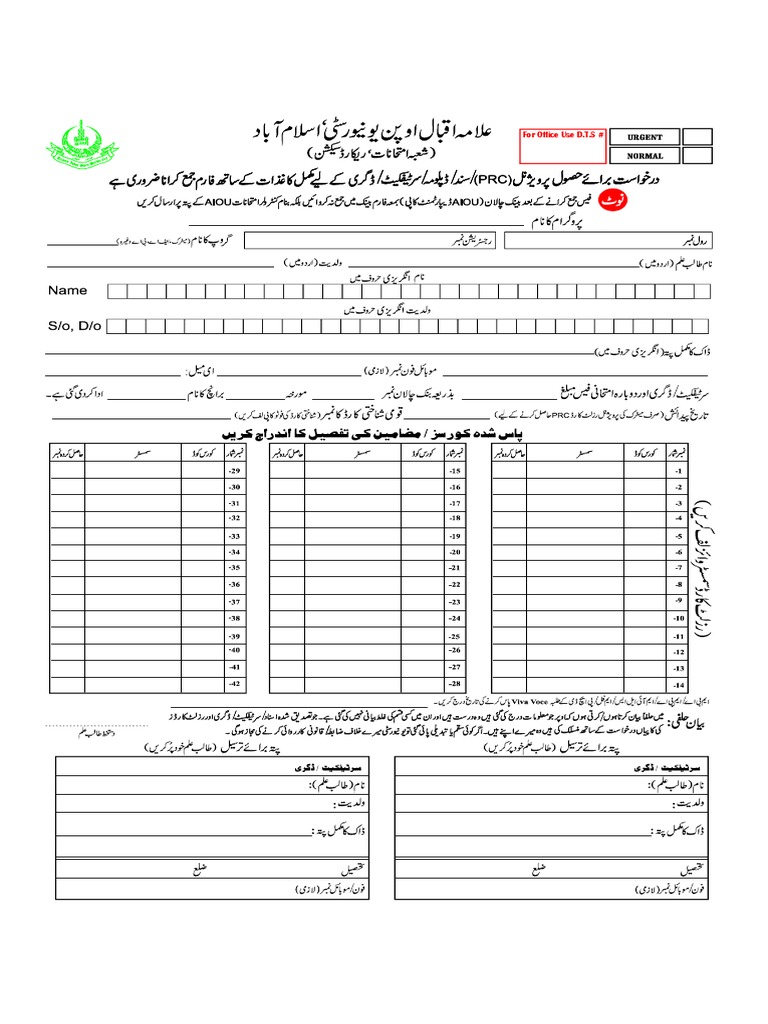 علامہ اقبال اوپن یونیورسٹی، اسلام آباد
(شعبہ امتحانات، ریکارڈ سیکشن)
For Office Use D.T.S #
URGENT
NORMAL
درخواست برائے حصول پرویژنل (PRC)/سند/ ڈپلومہ/سرٹیفکیٹ/ ڈگری کے لیے مکمل کاغذات کے ساتھ فارم جمع کرانا ضروری ہے
نوٹ فیس جمع کرانے کے بعد بینک چالان (AIOU ڈیپارٹمنٹ کاپی) بمعہ فارم بینک میں جمع نہ کروائیں بلکہ بنام کنٹرولر امتحانات AIOU کے پتہ پر ارسال کریں
پروگرام کا نام
رول نمبر رجسٹریشن نمبر گروپ کا نام (میٹرک، ایف اے، بی اے وغیرہ)
نام طالب علم (اردو میں) ولدیت (اردو میں)
نام انگریزی حروف میں
Name
ولدیت انگریزی حروف میں
S/o, D/o
ڈاک کا مکمل پتہ (انگریزی حروف میں)
موبائل فون نمبر (لازمی) ای میل:
سرٹیفکیٹ/ ڈگری اور دوبارہ امتحانی فیس مبلغ بذریعہ بنک چالان نمبر مورخہ برانچ کا نام ادا کردی گئی ہے۔
تاریخ پیدائش (صرف میٹرک کی پرویژنل رزلٹ کارڈ PRC حاصل کرنے کے لیے) قومی شناختی کارڈ کا نمبر (شناختی کارڈ کی فوٹو کاپی لف کریں)
پاس شدہ کورسز / مضامین کی تفصیل کا اندراج کریں
نمبر شمار کورس کوڈ سمسٹر حاصل کردہ نمبر نمبر شمار کورس کوڈ سمسٹر حاصل کردہ نمبر نمبر شمار کورس کوڈ سمسٹر حاصل کردہ نمبر
-1 -15 -29
-2 -16 -30
-3 -17 -31
-4 -18 -32
-5 -19 -33
-6 -20 -34
-7 -21 -35
-8 -22 -36
-9 -23 -37
-10 -24 -38
-11 -25 -39
-12 -26 -40
-13 -27 -41
-14 -28 -42
(رزلٹ کارڈ سمسٹر وائز لف کریں)
ایم بی اے/ ایم پی اے/ ایم آئی ایل ایس/ ایم فل/ پی ایچ ڈی کے طلبہ Viva Voce پاس کرنے کی تاریخ درج کریں۔
بیان حلفی: میں حلفاً بیان کرتا ہوں/ کرتی ہوں کہ اوپر جو معلومات درج کی گئی ہیں وہ درست ہیں اور ان میں کسی قسم کی غلط بیانی نہیں کی گئی ہے۔ جو تصدیق شدہ اسناد/ سرٹیفکیٹ/ ڈگری اور رزلٹ کارڈز
کی کاپیاں درخواست کے ساتھ منسلک کی ہیں وہ میرے اپنے ہیں۔ اگر کوئی سقم یا تبدیلی پائی گئی تو یونیورسٹی میرے خلاف ضابطہ/ قانونی کارروائی کرنے کی مجاز ہوگی۔
دستخط طالب علم
پتہ برائے ترسیل (طالب علم خود پُر کریں) پتہ برائے ترسیل (طالب علم خود پُر کریں)
سرٹیفکیٹ / ڈگری سرٹیفکیٹ / ڈگری
نام (طالب علم): نام (طالب علم):
ولدیت: ولدیت:
ڈاک کا مکمل پتہ: ڈاک کا مکمل پتہ:
تحصیل ضلع تحصیل ضلع
فون/موبائل نمبر (لازمی) فون/موبائل نمبر (لازمی)